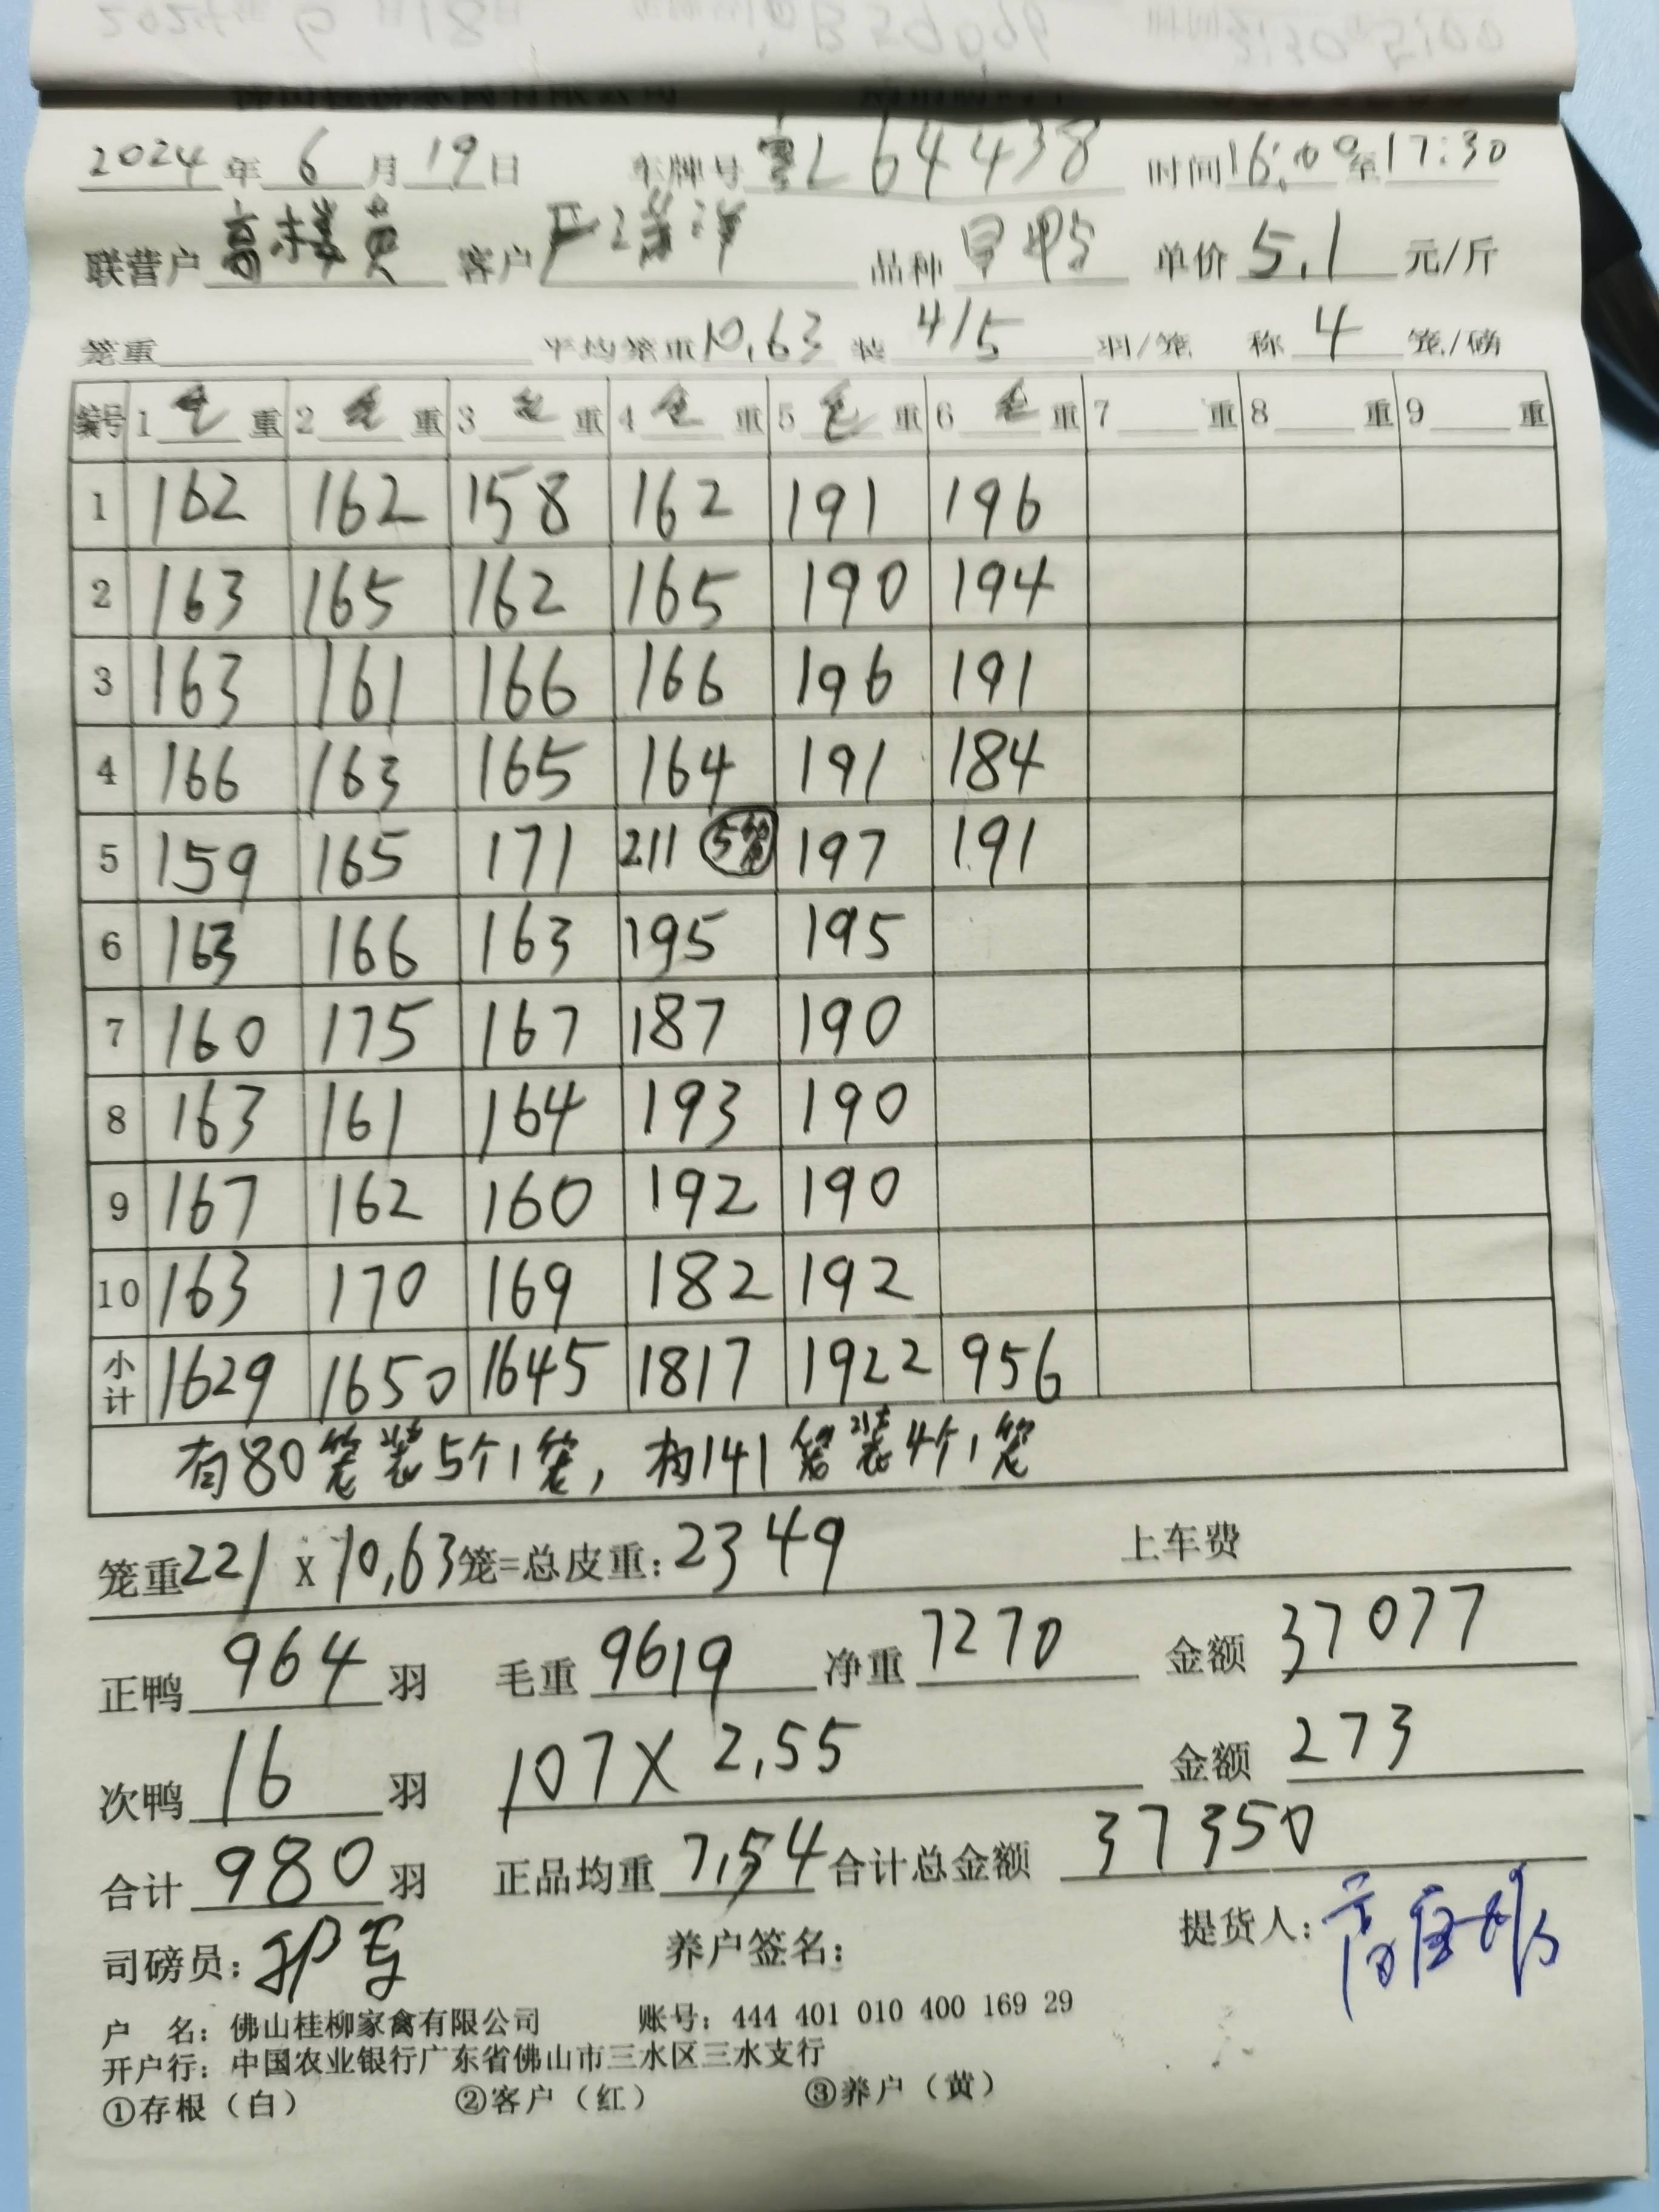 2024年6月19日 车牌号 L64438 时间16:00至17:30
联营户 高楼英 客户 严洋 品种 早鸭 单价5.1元/斤
笼重 平均笼重10.63 装4/5羽/笼 称4笼/磅
编号 1毛重 2毛重 3毛重 4毛重 5毛重 6毛重 7重 8重 9重
1 162 162 158 162 191 196
2 163 165 162 165 190 194
3 163 161 166 166 196 191
4 166 163 165 164 191 184
5 159 165 171 211 5笼 197 191
6 163 166 163 195 195
7 160 175 167 187 190
8 163 161 164 193 190
9 167 162 160 192 190
10 163 170 169 182 192
小计 1629 1650 1645 1817 1922 956
有80笼装5个1笼,有141笼装4个1笼
笼重221 X 10.63笼=总皮重:2349 上车费
正鸭964羽 毛重9619 净重7270 金额37077
次鸭16羽 107X2.55 金额273
合计980羽 正品均重7.54 合计总金额37350
司磅员: 养户签名: 提货人:
户 名:佛山桂柳家禽有限公司 账号:444 401 010 400 169 29
开户行:中国农业银行广东省佛山市三水区三水支行
①存根(白) ②客户(红) ③养户(黄)